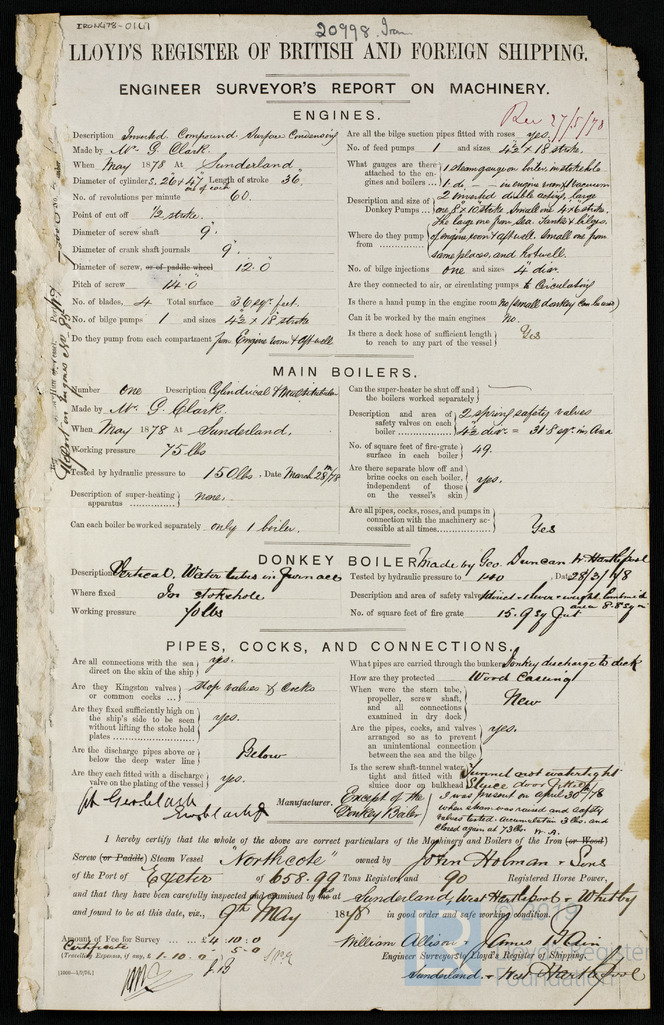 IRON478-0161
20998 Iron
LLOYD'S REGISTER OF BRITISH AND FOREIGN SHIPPING.
ENGINEER SURVEYOR'S REPORT ON MACHINERY.
ENGINES.
Rec 27/5/78
Description Inverted Compound Surface Condensing
Made by Mr. G. Clark
When May 1878 At Sunderland
Diameter of cylinders, 26" & 47" Length of stroke 36"
one of each
No. of revolutions per minute 60.
Point of cut off ½ stroke.
Diameter of screw shaft 9"
Diameter of crank shaft journals 9"
Diameter of screw, or of paddle wheel 12.0
Pitch of screw 14.0
No. of blades, 4 Total surface 36 sqr. feet.
No. of bilge pumps 1 and sizes 4½ x 18" stroke
Do they pump from each compartment from Engine room & aft well
Are all the bilge suction pipes fitted with roses yes.
No. of feed pumps 1 and sizes 4½" x 18 stroke.
What gauges are there attached to the engines and boilers 1 steam gauge on boiler, in stokehole
1 do. — — in engine room & 1 vacuum
Description and size of Donkey Pumps 2 Inverted double acting, large
one 8" x 10 stroke. Small one 4 x 6 stroke.
Where do they pump from The large one from Sea. Tanks & bilges
of engine room & aft well. Small one from
same places, and hotwell.
No. of bilge injections one and sizes 4" diar.
Are they connected to air, or circulating pumps to Circulating
Is there a hand pump in the engine room No (small donkey can be used)
Can it be worked by the main engines No.
Is there a deck hose of sufficient length to reach to any part of the vessel Yes
MAIN BOILERS.
Number one Description Cylindrical & Multitubular
Made by Mr. G. Clark.
When May 1878 At Sunderland.
Working pressure 75 lbs
Tested by hydraulic pressure to 150 lbs. Date March 28th/78
Description of super-heating apparatus none.
Can each boiler be worked separately only 1 boiler.
Can the super-heater be shut off and the boilers worked separately
Description and area of safety valves on each boiler 2 spring safety valves
4½ diar. = 31.8 sqr. in Area
No. of square feet of fire-grate surface in each boiler 49.
Are there separate blow off and brine cocks on each boiler, independent of those on the vessel's skin yes.
Are all pipes, cocks, roses, and pumps in connection with the machinery accessible at all times Yes
DONKEY BOILER made by Geo. Duncan W. Hartlepool
Description Vertical. Water tubes in furnace
Where fixed In stokehole
Working pressure 70 lbs
Tested by hydraulic pressure to 140, Date 28/3/78
Description and area of safety valve direct - lever - weight Combined
area 8.8 sq in
No. of square feet of fire grate 15.9 Sq feet
PIPES, COCKS, AND CONNECTIONS.
Are all connections with the sea direct on the skin of the ship yes.
Are they Kingston valves or common cocks stop valves & Cocks
Are they fixed sufficiently high on the ship's side to be seen without lifting the stoke hold plates yes.
Are the discharge pipes above or below the deep water line Below
Are they each fitted with a discharge valve on the plating of the vessel yes.
What pipes are carried through the bunkers Donkey discharge to deck
How are they protected Wood Casing
When were the stern tube, propeller, screw shaft, and all connections examined in dry dock New
Are the pipes, cocks, and valves arranged so as to prevent an unintentional connection between the sea and the bilge yes.
Is the screw shaft-tunnel watertight and fitted with a sluice door on bulkhead Tunnel not watertight
Sluice door fitted
Manufacturer. Except of the Donkey Boiler
I was present on April 30th/78
when steam was raised and Safety
valves tested. accumulation 3 lbs. and
closed again at 73 lbs. W. A.
I hereby certify that the whole of the above are correct particulars of the Machinery and Boilers of the Iron (or Wood)
Screw (or Paddle) Steam Vessel "Northcote" owned by John Holman & Sons
of the Port of Exeter of 658.99 Tons Register, and 90 Registered Horse Power,
and that they have been carefully inspected and examined by me at Sunderland, West Hartlepool & Whitby
and found to be at this date, viz., 9th May 1878 in good order and safe working condition.
Amount of Fee for Survey £4.10:0
Certificate 5-0
(Travelling Expenses, if any, £ 1.10.0)
William Allison & James Blain
Engineer Surveyors to Lloyd's Register of Shipping.
Sunderland & West Hartlepool
(1000—1/9/76.)
© 2019
Lloyd's Register
Foundation